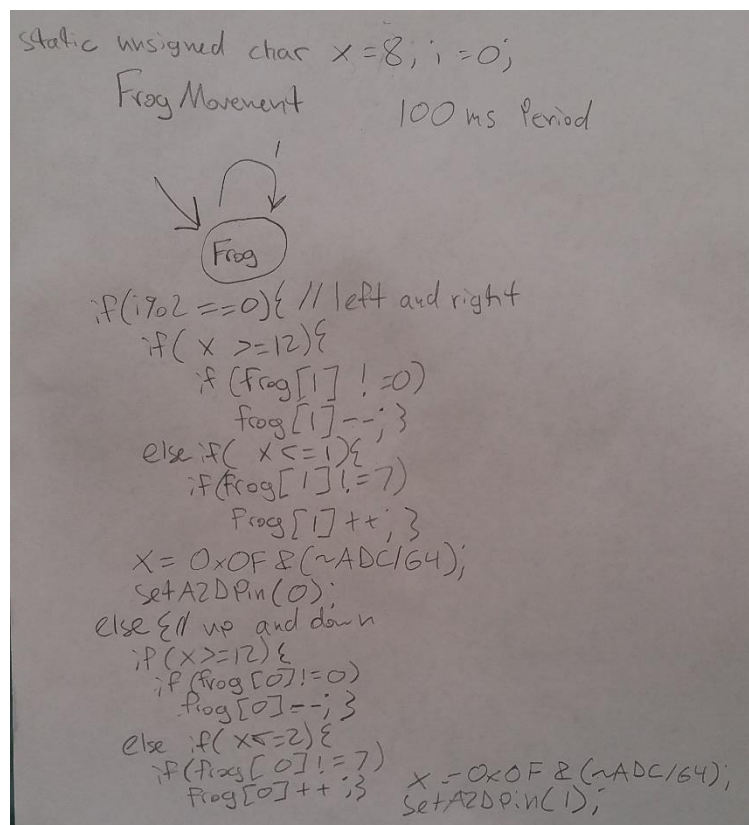 static unsigned char x=8, i=0;
Frog Movement 100 ms Period
1
Frog
if(i%2==0){ // left and right
if( x >=12){
if (frog[1] !=0)
frog[1]--; }
else if( x<=1){
if(frog[1]!=7)
frog[1]++; }
x= 0x0F &(~ADC/64);
setA2DPin(0);
else {// up and down
if(x>=12){
if(frog[0]!=0)
frog[0]--; }
else if(x<=2){
if(frog[0]!=7)
frog[0]++;}
x=0x0F &(~ADC/64);
setA2DPin(1);